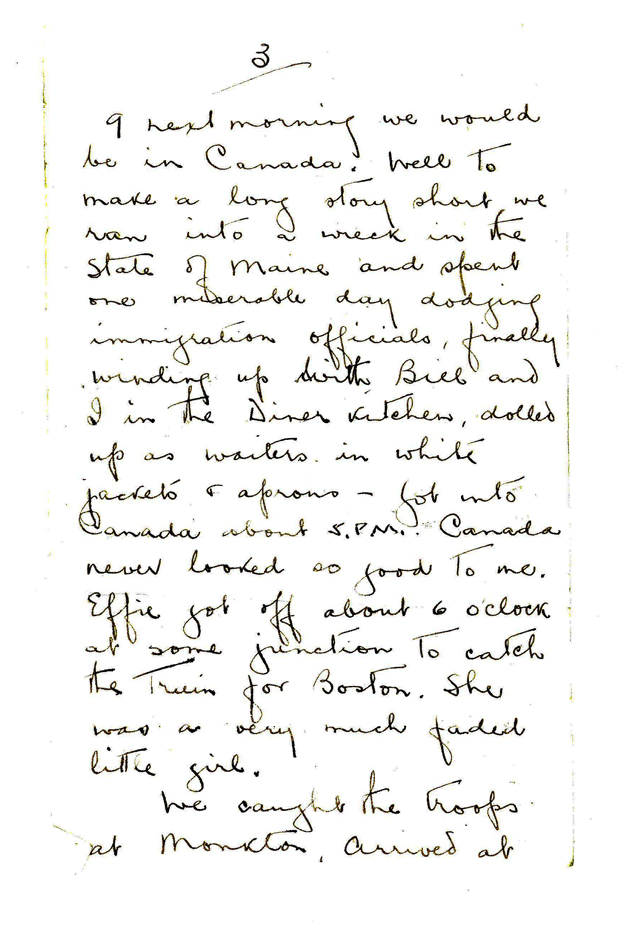 3
9 next morning we would
be in Canada. Well to
make a long story short, we
ran into a wreck in the
State of Maine and spent
one miserable day dodging
immigration officials, finally
winding up with Bill and
I in the Diner kitchen, dolled
up as waiters in white
jackets & aprons - Got into
Canada about 5.P.M. Canada
never looked so good to me.
Effie got off about 6 o'clock
at some junction to catch
the Train for Boston. She
was a very much faded
little girl.
We caught the troops
at Monkton, arrived at